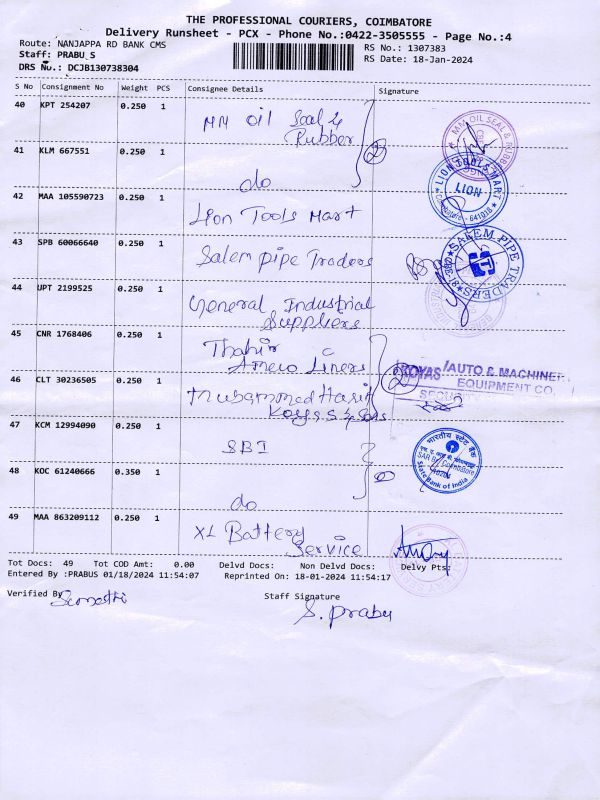 THE PROFESSIONAL COURIERS, COIMBATORE
Delivery Runsheet - PCX - Phone No.:0422-3505555 - Page No.:4
Route: NANJAPPA RD BANK CMS
RS No.: 1307383
Staff: PRABU_S
RS Date: 18-Jan-2024
DRS No.: DCJB130738304
S No Consignment No Weight PCS Consignee Details Signature
40 KPT 254207 0.250 1 MM Oil Seal &
Rubber
MM OIL SEAL & RUBB
41 KLM 667551 0.250 1 do
2
LION TOOLS MART
LION
Coimbatore - 641018
42 MAA 105590723 0.250 1 Lion Tools Mart
43 SPB 60066640 0.250 1 Salem Pipe Traders
SALEM PIPE TRADERS
44 UPT 2199525 0.250 1 General Industrial
Suppliers
45 CNR 1768406 0.250 1 Thahir
Liners
2
ROYAS /AUTO & MACHINER
EQUIPMENT CO.
46 CLT 30236505 0.250 1 Muhammed
& Sons
47 KCM 12994090 0.250 1 SBI
भारतीय स्टेट बैंक
Coimbatore
State Bank of India
48 KOC 61240666 0.350 1 do
49 MAA 863209112 0.250 1 XL Battery
Service
Tot Docs: 49 Tot COD Amt: 0.00 Delvd Docs: Non Delvd Docs: Delvy Pts:
Entered By :PRABUS 01/18/2024 11:54:07 Reprinted On: 18-01-2024 11:54:17
Verified By
Staff Signature
S. Prabu